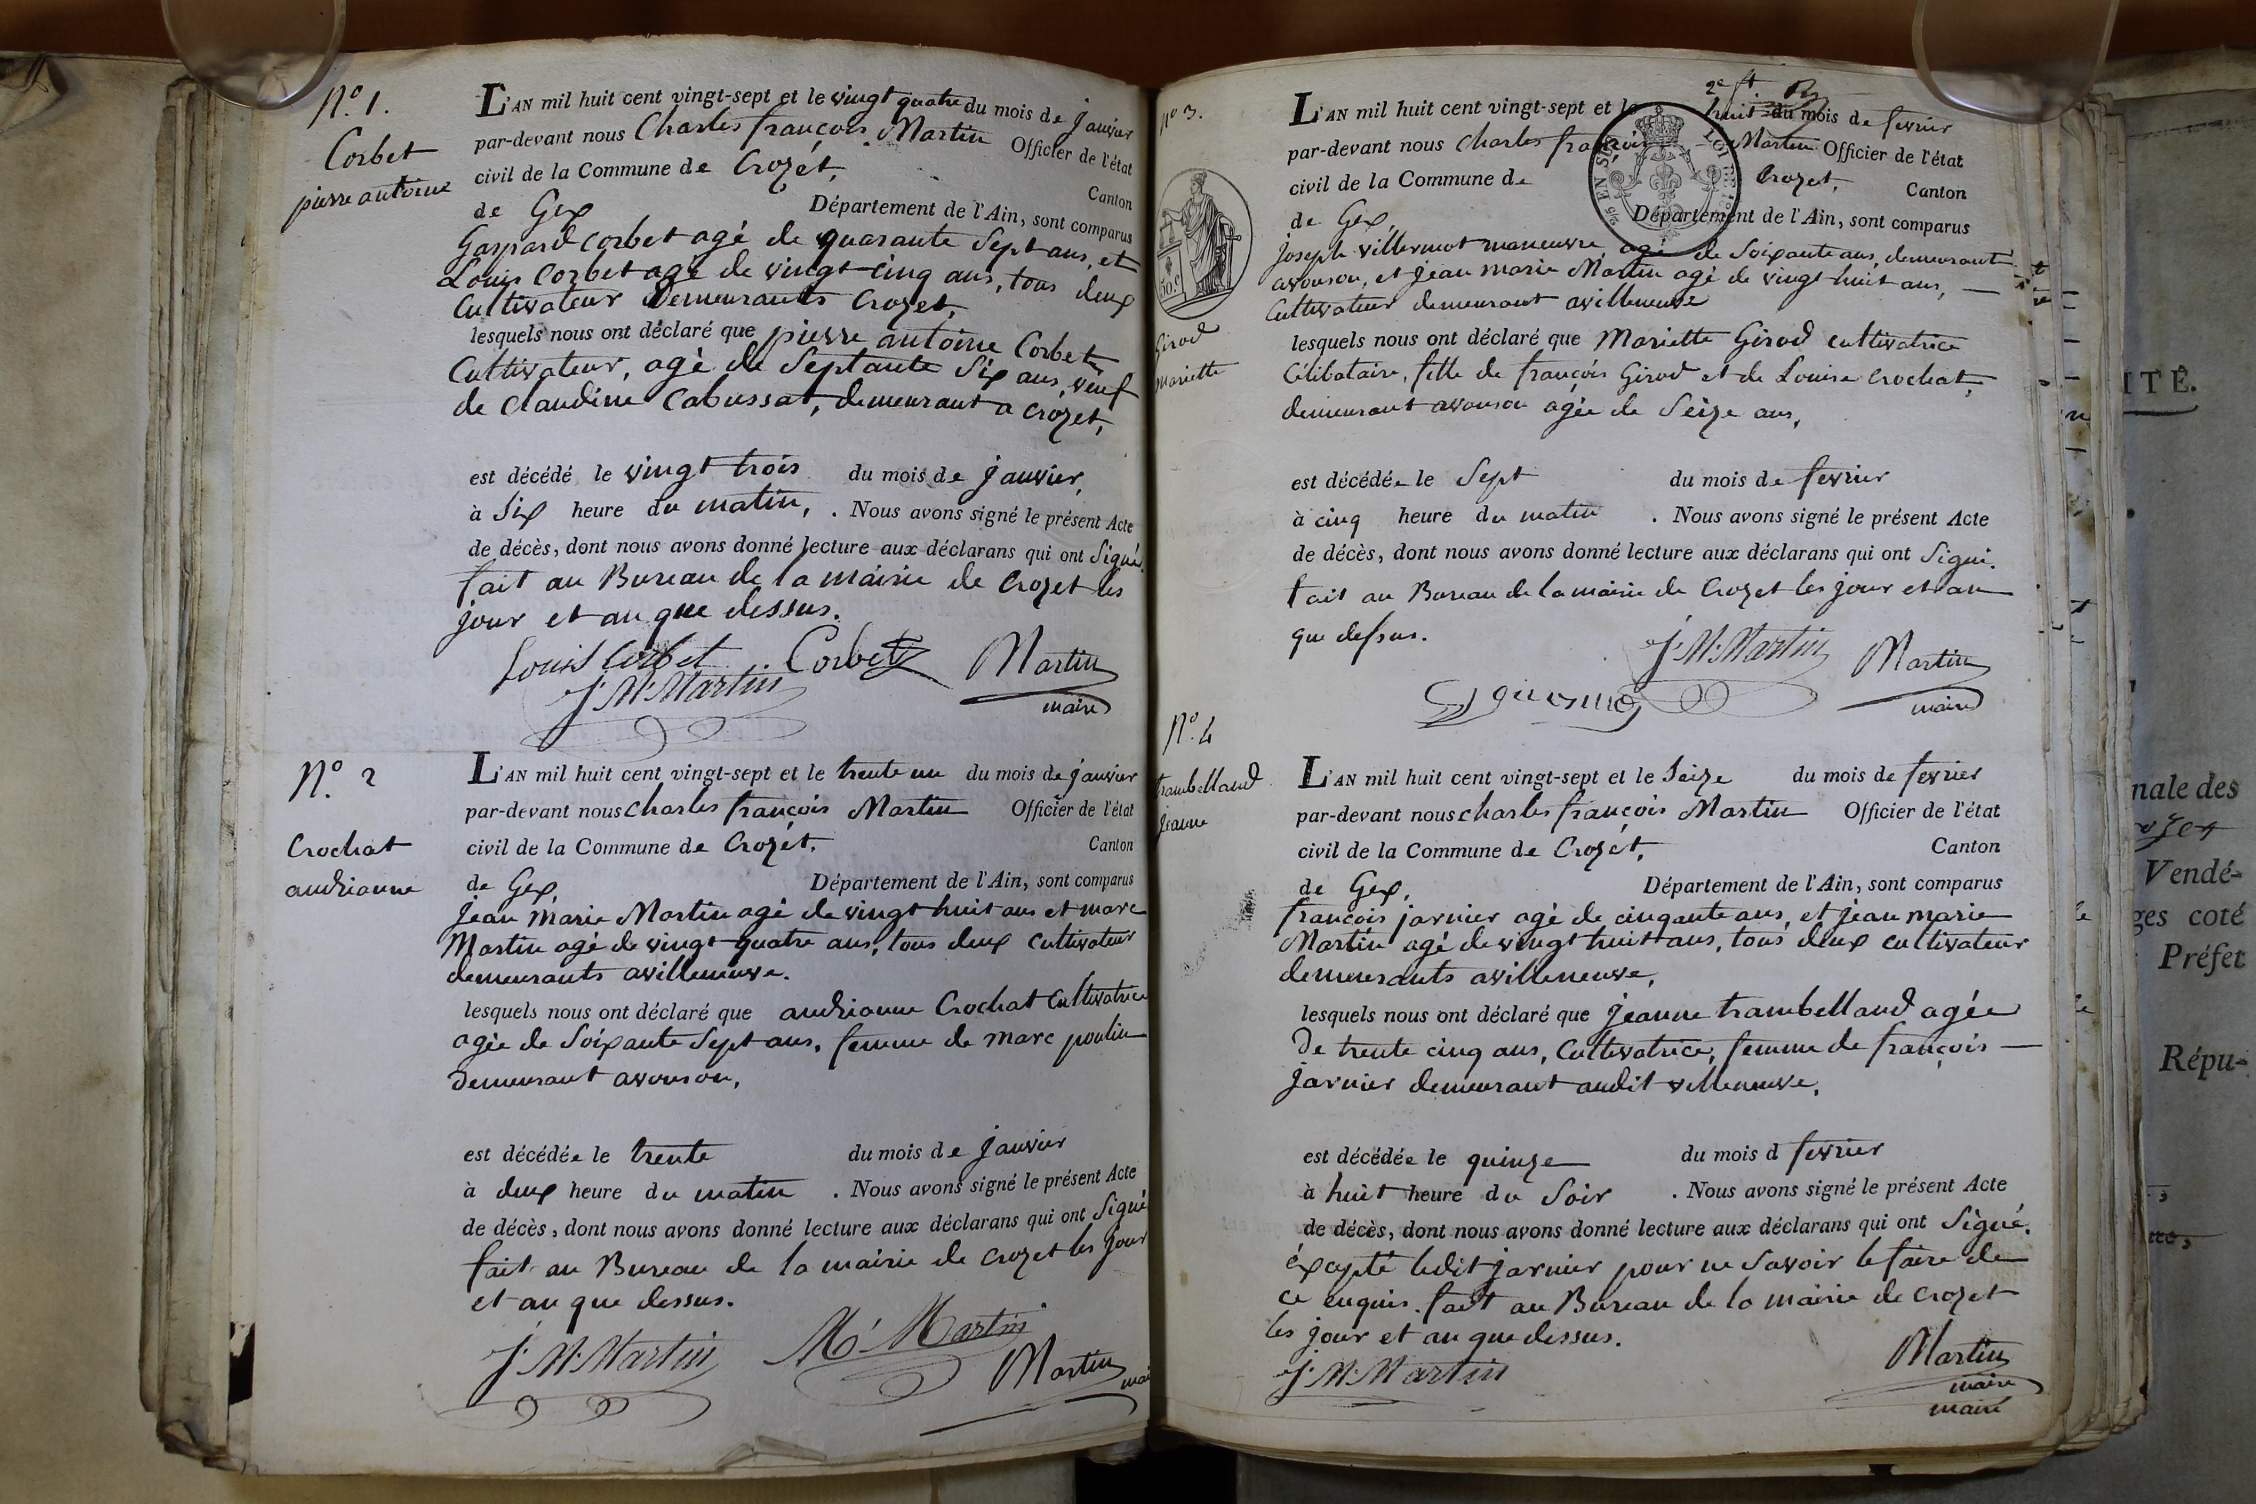 N.º 1.
Corbet
pierre antoine
L'AN mil huit cent vingt-sept et le vingt quatre du mois de janvier
par-devant nous Charles françois Martin Officier de l'état
civil de la Commune de Crozét, Canton
de Gex Département de l'Ain, sont comparus
Gaspard Corbet agé de quarante Sept ans, et
Louis Corbet agé de vingt-cinq ans, tous deux
Cultivateur Demeurants Crozet,
lesquels nous ont déclaré que pierre antoine Corbet
Cultivateur, agé de Septante Six ans, veuf
de Claudine Cabussat, demeurant a crozet,
est décédé le vingt trois du mois de janvier,
à Six heure du matin, . Nous avons signé le présent Acte
de décès, dont nous avons donné lecture aux déclarans qui ont Signé.
fait au Bureau de la mairie de Crozet les
jour et an que dessus.
Louis Corbet Corbet Martin
J. M. Martin maire
N.º 2
Crochat
andrianne
L'AN mil huit cent vingt-sept et le trente un du mois de janvier
par-devant nous charles françois Martin Officier de l'état
civil de la Commune de Crozét, Canton
de Gex, Département de l'Ain, sont comparus
jean Marie Martin agé de vingt huit ans et marc
Martin agé de vingt-quatre ans, tous deux cultivateur
demeurants avilleneuve.
lesquels nous ont déclaré que andrianne Crochat Cultivatrice
agée de Soixante Sept ans, femme de marc poulin
Demeurant avouson,
est décédée le trente du mois de janvier
à deux heure du matin . Nous avons signé le présent Acte
de décès, dont nous avons donné lecture aux déclarans qui ont Signé
fait au Bureau de la mairie de crozet les jour
et an que dessus.
J. M. Martin M. Martin
Martin mai
nº 3.
50.c
Girod
mariette
2e ft.
L'AN mil huit cent vingt-sept et le huit du mois de fevrier
par-devant nous Charles françois Martin Officier de l'état
civil de la Commune de Crozet, Canton
de Gex, Département de l'Ain, sont comparus
joseph villermot maneuvre, agé de Soixante ans, demeurant
avouson, et jean marie Martin agé de vingt huit ans,
Cultivateur demeurant avilleneuve
lesquels nous ont déclaré que Mariette Girod cultivatrice
Célibataire, fille de françois Girod et de Louise crochat,
demeurant avouson agée de Seize ans,
est décédée le Sept du mois de fevrier
à cinq heure du matin . Nous avons signé le présent Acte
de décès, dont nous avons donné lecture aux déclarans qui ont Signé.
fait au Bureau de la mairie de Crozet les jour et an
que dessus.
J. M. Martin Martin
maire
N.º 4
trambelland
jeanne
L'AN mil huit cent vingt-sept et le Seize du mois de fevrier
par-devant nous charles françois Martin Officier de l'état
civil de la Commune de Crozét, Canton
de Gex, Département de l'Ain, sont comparus
françois jarnier agé de cinquante ans, et jean marie
Martin agé de vingt huit ans, tous deux cultivateur
demeurants avilleneuve,
lesquels nous ont déclaré que jeanne trambelland agée
De trente cinq ans, Cultivatrice, femme de françois
jarnier demeurant audit villeneuve,
est décédée le quinze du mois d fevrier
à huit heure du Soir . Nous avons signé le présent Acte
de décès, dont nous avons donné lecture aux déclarans qui ont Signé.
éxcepté ledit jarnier pour ne Savoir le faire de
ce enquis. fait au Bureau de la mairie de crozet
les jour et an que dessus.
J. M. Martin Martin
maire
maire
ITÉ.
nale des
Vendé-
ges coté
Préfet
Répu-